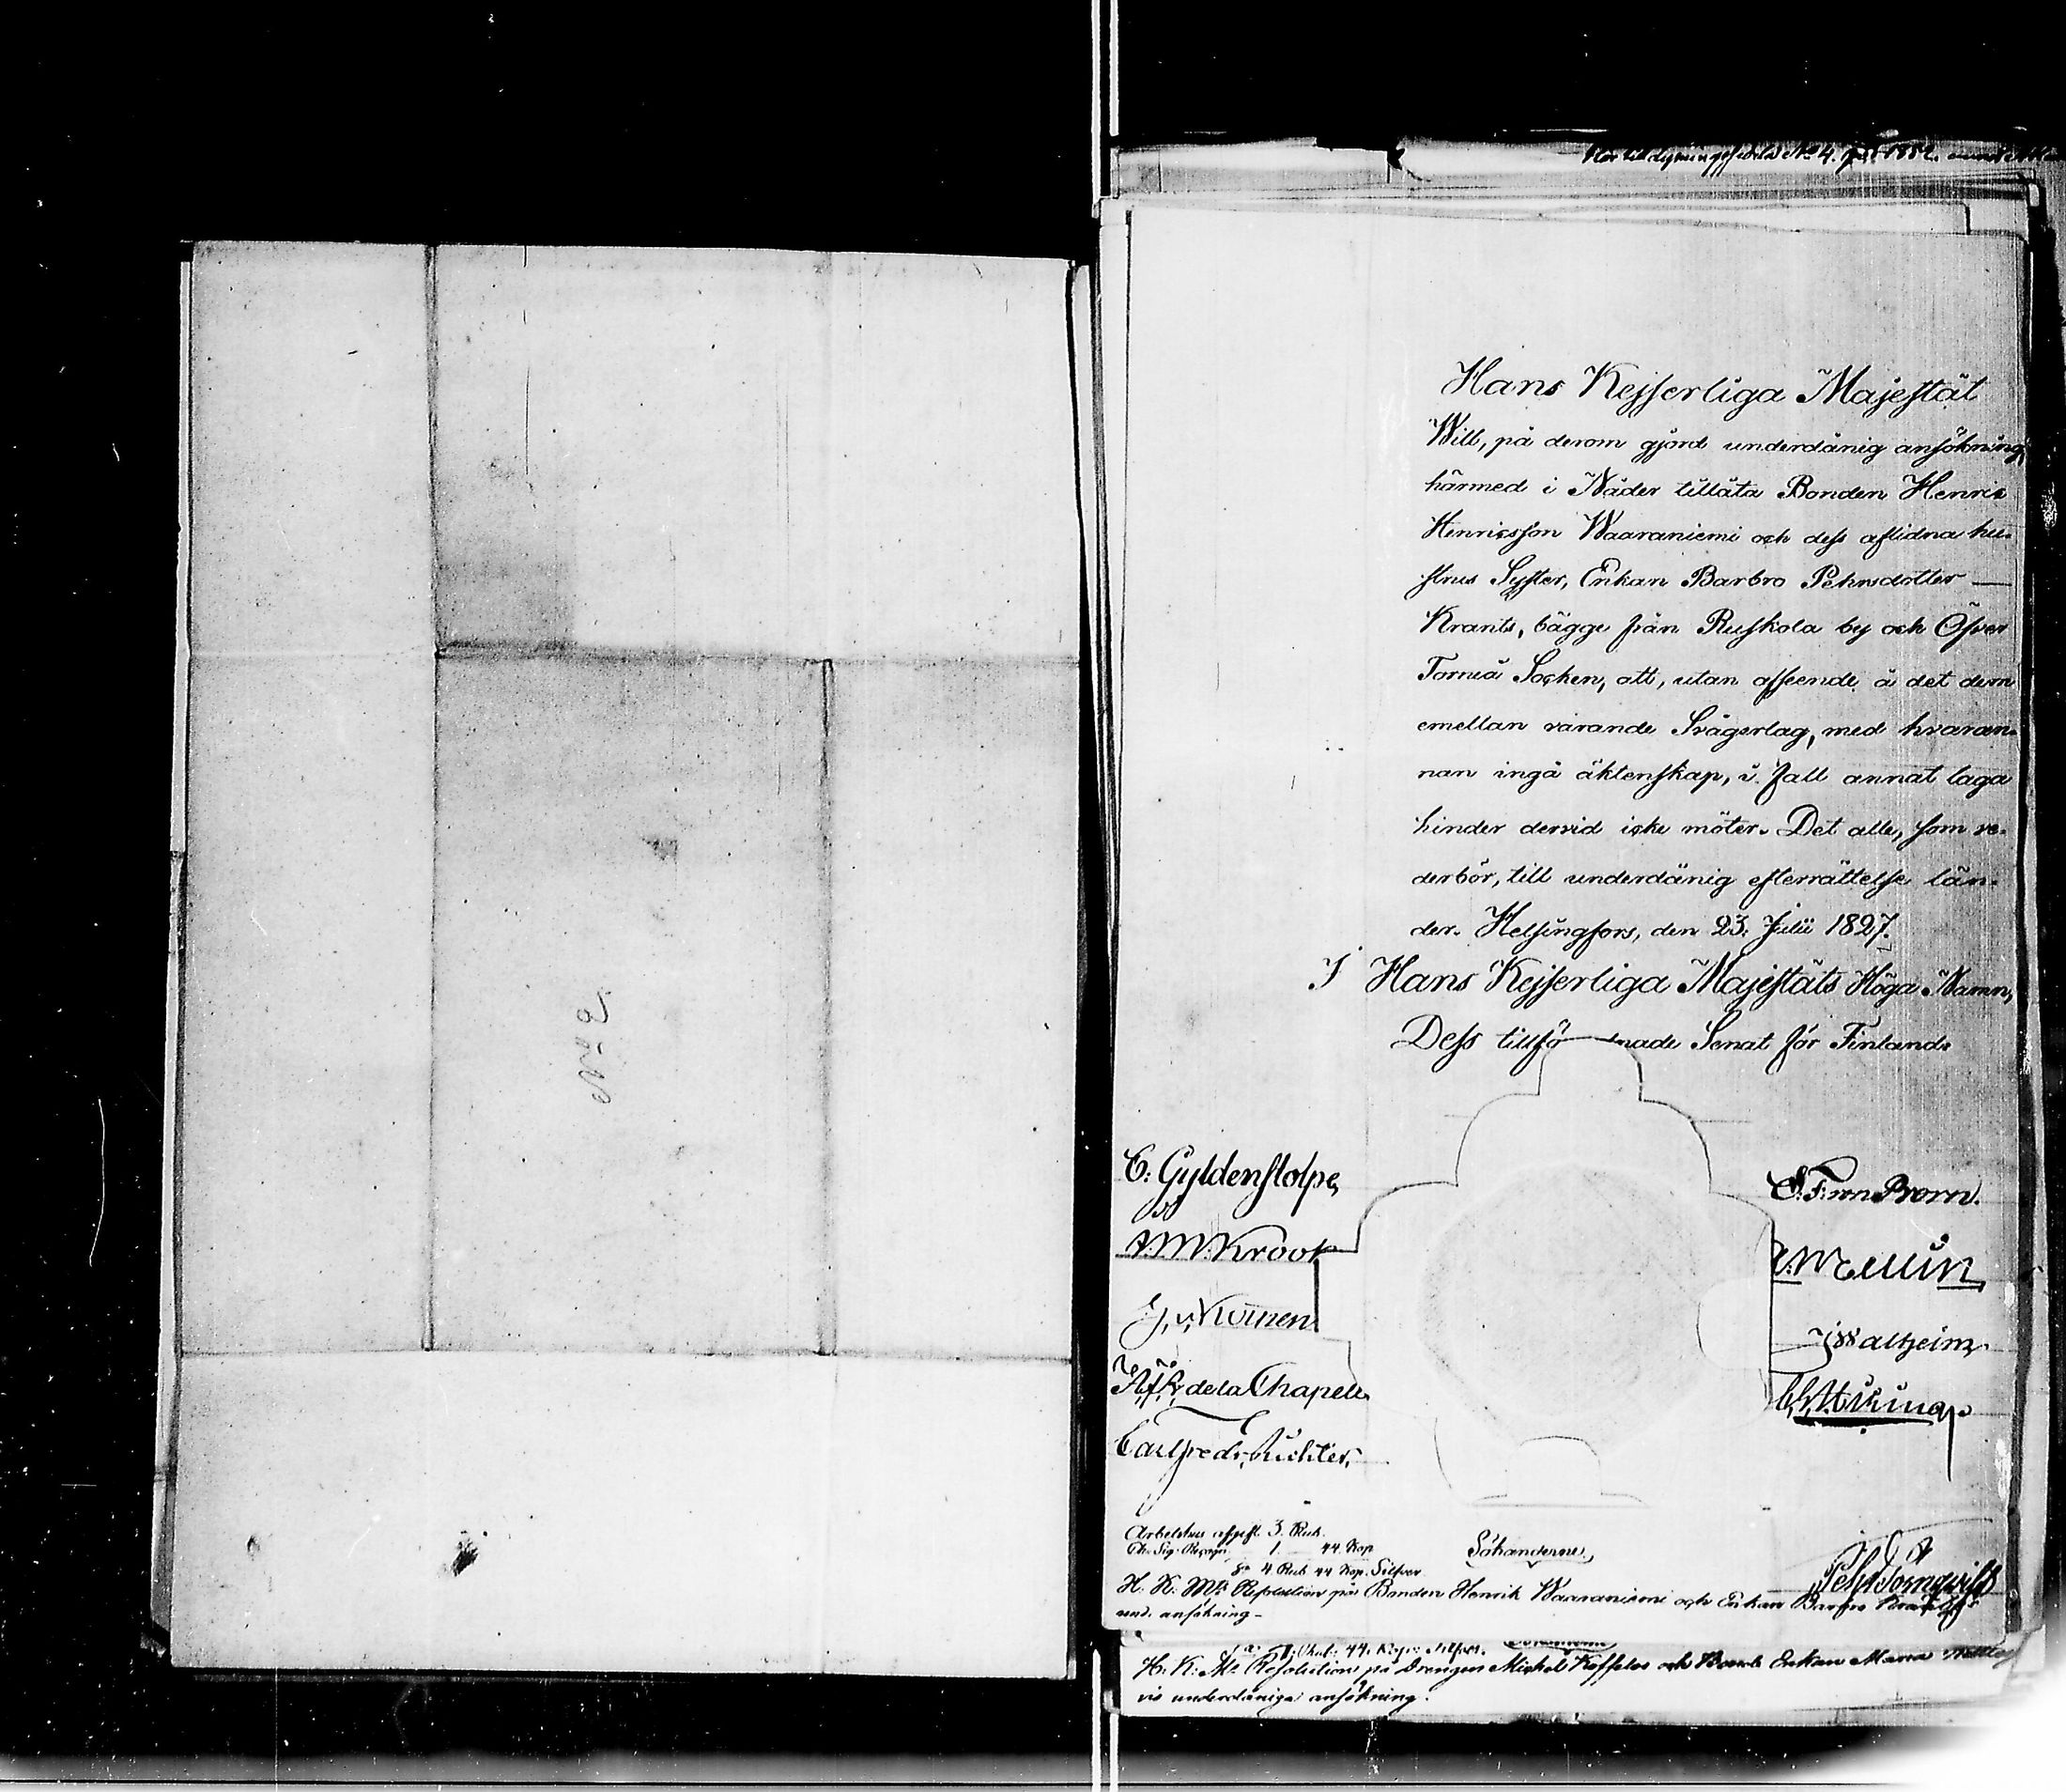 N:o 2
1852.
Hans Kejserliga Majestät
Will, på derom gjord underdånig ansökning,
härmed i Nåder tillåta Bonden Henric
Henricsson Waaraniemi och dess aflidna hu-
strus Syster, Enkan Barbro Pehrsdotter
Krants, bägge från Ruskola by och Öfver
Torneå Socken, att, utan afseende å det dem
emellan varande Svågerlag, med hvaran-
nan ingå äktenskap, i fall annat laga
hinder dervid icke möter. Det alle, som ve-
derbör, till underdånig efterrättelse län-
der. Helsingfors, den 23. Julii 1827.
I Hans Kejserliga Majestäts Höga Namn,
Dess tillförordnade Senat för Finland.
C: Gyldenstolpe,
Krook
de la Chapelle
Carl Fredr. Richter.
E: F: von Born.
Mellin
J Walheim
Arbetshus afgift 3. Rub.
1. 44. Kop
S:a 4. Rub 44 Kop. Silfver
Sökanderne.
H. K. M:ts Resolution på Bonden Henrik Waaraniemi och Enkan Barbro Krants
und. ansökning-
44. Kop: Silfver.
H. K: M:ts Resolution på Drengen Michel och Enkan Maria
underdåniga ansökning.